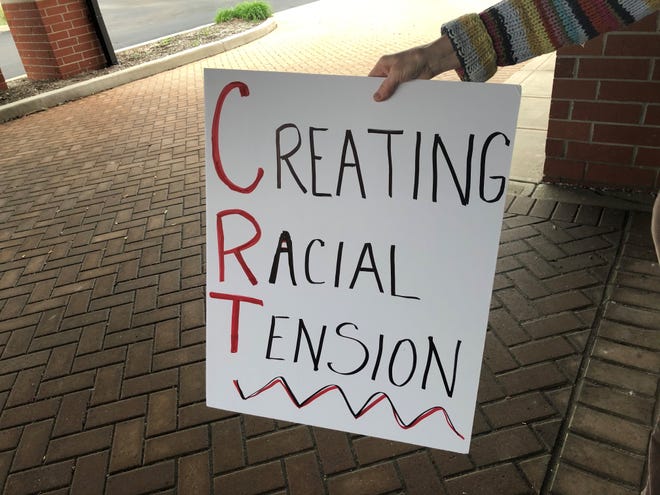 CREATING
RACIAL
TENSION